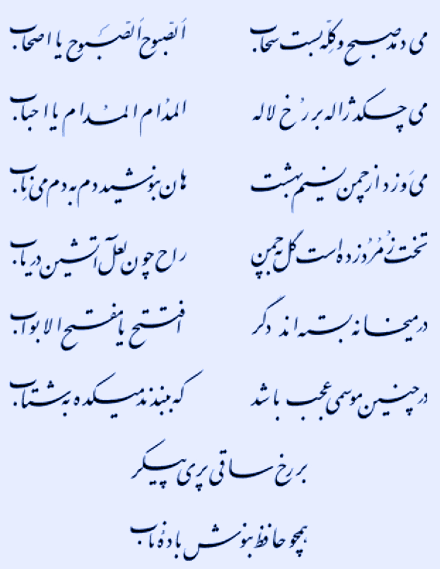 می دمد صبح و کِلّه بست سحاب الصَّبوح الصَّبوح یا اصحاب
می چکد ژاله بر رخ لاله المُدام المُدام یا احباب
می وزد از چمن نسیم بهشت هان بنوشید دم به دم می ناب
تخت زُمرد زده است گل به چمن راح چون لعل آتشین دریاب
در میخانه بسته اند دگر افتتح یا مفتح الابواب
در چنین موسمی عجب باشد که ببندند میکده به شتاب
بر رخ ساقی پری پیکر
همچو حافظ بنوش بادهٔ ناب